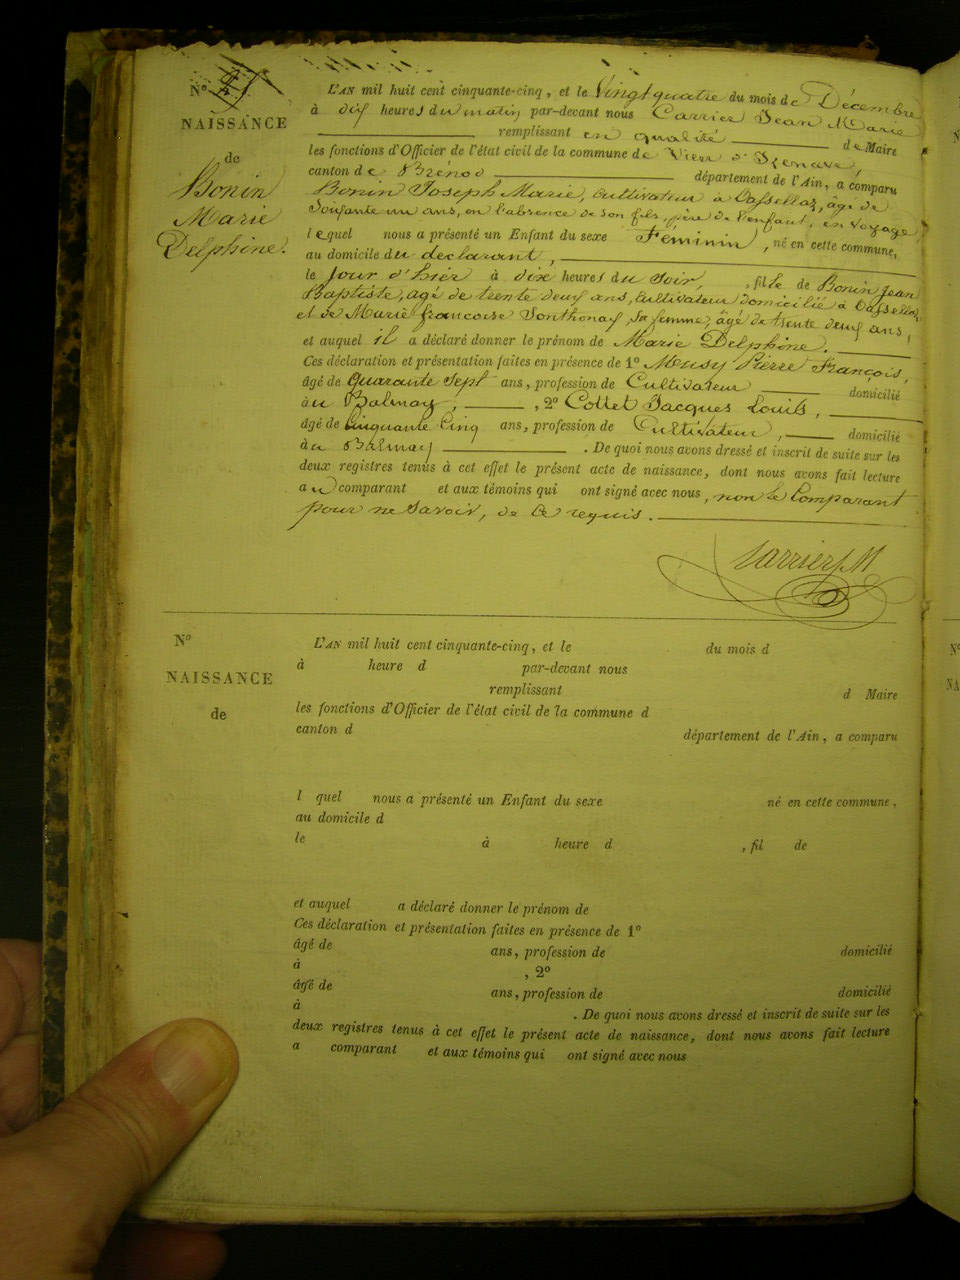 N°
NAISSANCE
de
Bonin
Marie
Delphine.
L'AN mil huit cent cinquante-cinq, et le Vingt quatre du mois de Décembre
à dix heures du matin par-devant nous Carrier Jean Marie
remplissant en qualité de Maire
les fonctions d'Officier de l'état civil de la commune de Vieu d'Izenave,
canton de Brénod département de l'Ain, a comparu
Bonin Joseph Marie, Cultivateur à , âgé de
Soixante un ans, en l'absence de son fils, père de l'enfant, en voyage
lequel nous a présenté un Enfant du sexe Féminin, né en cette commune,
au domicile du déclarant,
le Jour d'hier à dix heures du Soir, , fille de Bonin Jean
Baptiste, agé de trente deux ans, Cultivateur domicilié à
et de Marie françoise Sonthonax, sa femme, âgé de trente deux ans,
et auquel il a déclaré donner le prénom de Marie Delphine.
Ces déclaration et présentation faites en présence de 1° Meusy Pierre François,
âgé de quarante Sept ans, profession de Cultivateur domicilié
à au Balmay, , 2° Cottet Jacques Louis,
âgé de Cinquante Cinq ans, profession de Cultivateur, domicilié
à au Balmay . De quoi nous avons dressé et inscrit de suite sur les
deux registres tenus à cet effet le présent acte de naissance, dont nous avons fait lecture
au comparant et aux témoins qui ont signé avec nous, non le Comparant
pour ne Savoir, de Ce requis.
Carrier JM
N°
NAISSANCE
de
L'AN mil huit cent cinquante-cinq, et le du mois d
à heure d par-devant nous
remplissant d Maire
les fonctions d'Officier de l'état civil de la commune d
canton d département de l'Ain, a comparu
l quel nous a présenté un Enfant du sexe né en cette commune,
au domicile d
le à heure d , fil de
et auquel a déclaré donner le prénom de
Ces déclaration et présentation faites en présence de 1°
âgé de ans, profession de domicilié
à , 2°
âgé de ans, profession de domicilié
à . De quoi nous avons dressé et inscrit de suite sur les
deux registres tenus à cet effet le présent acte de naissance, dont nous avons fait lecture
a comparant et aux témoins qui ont signé avec nous